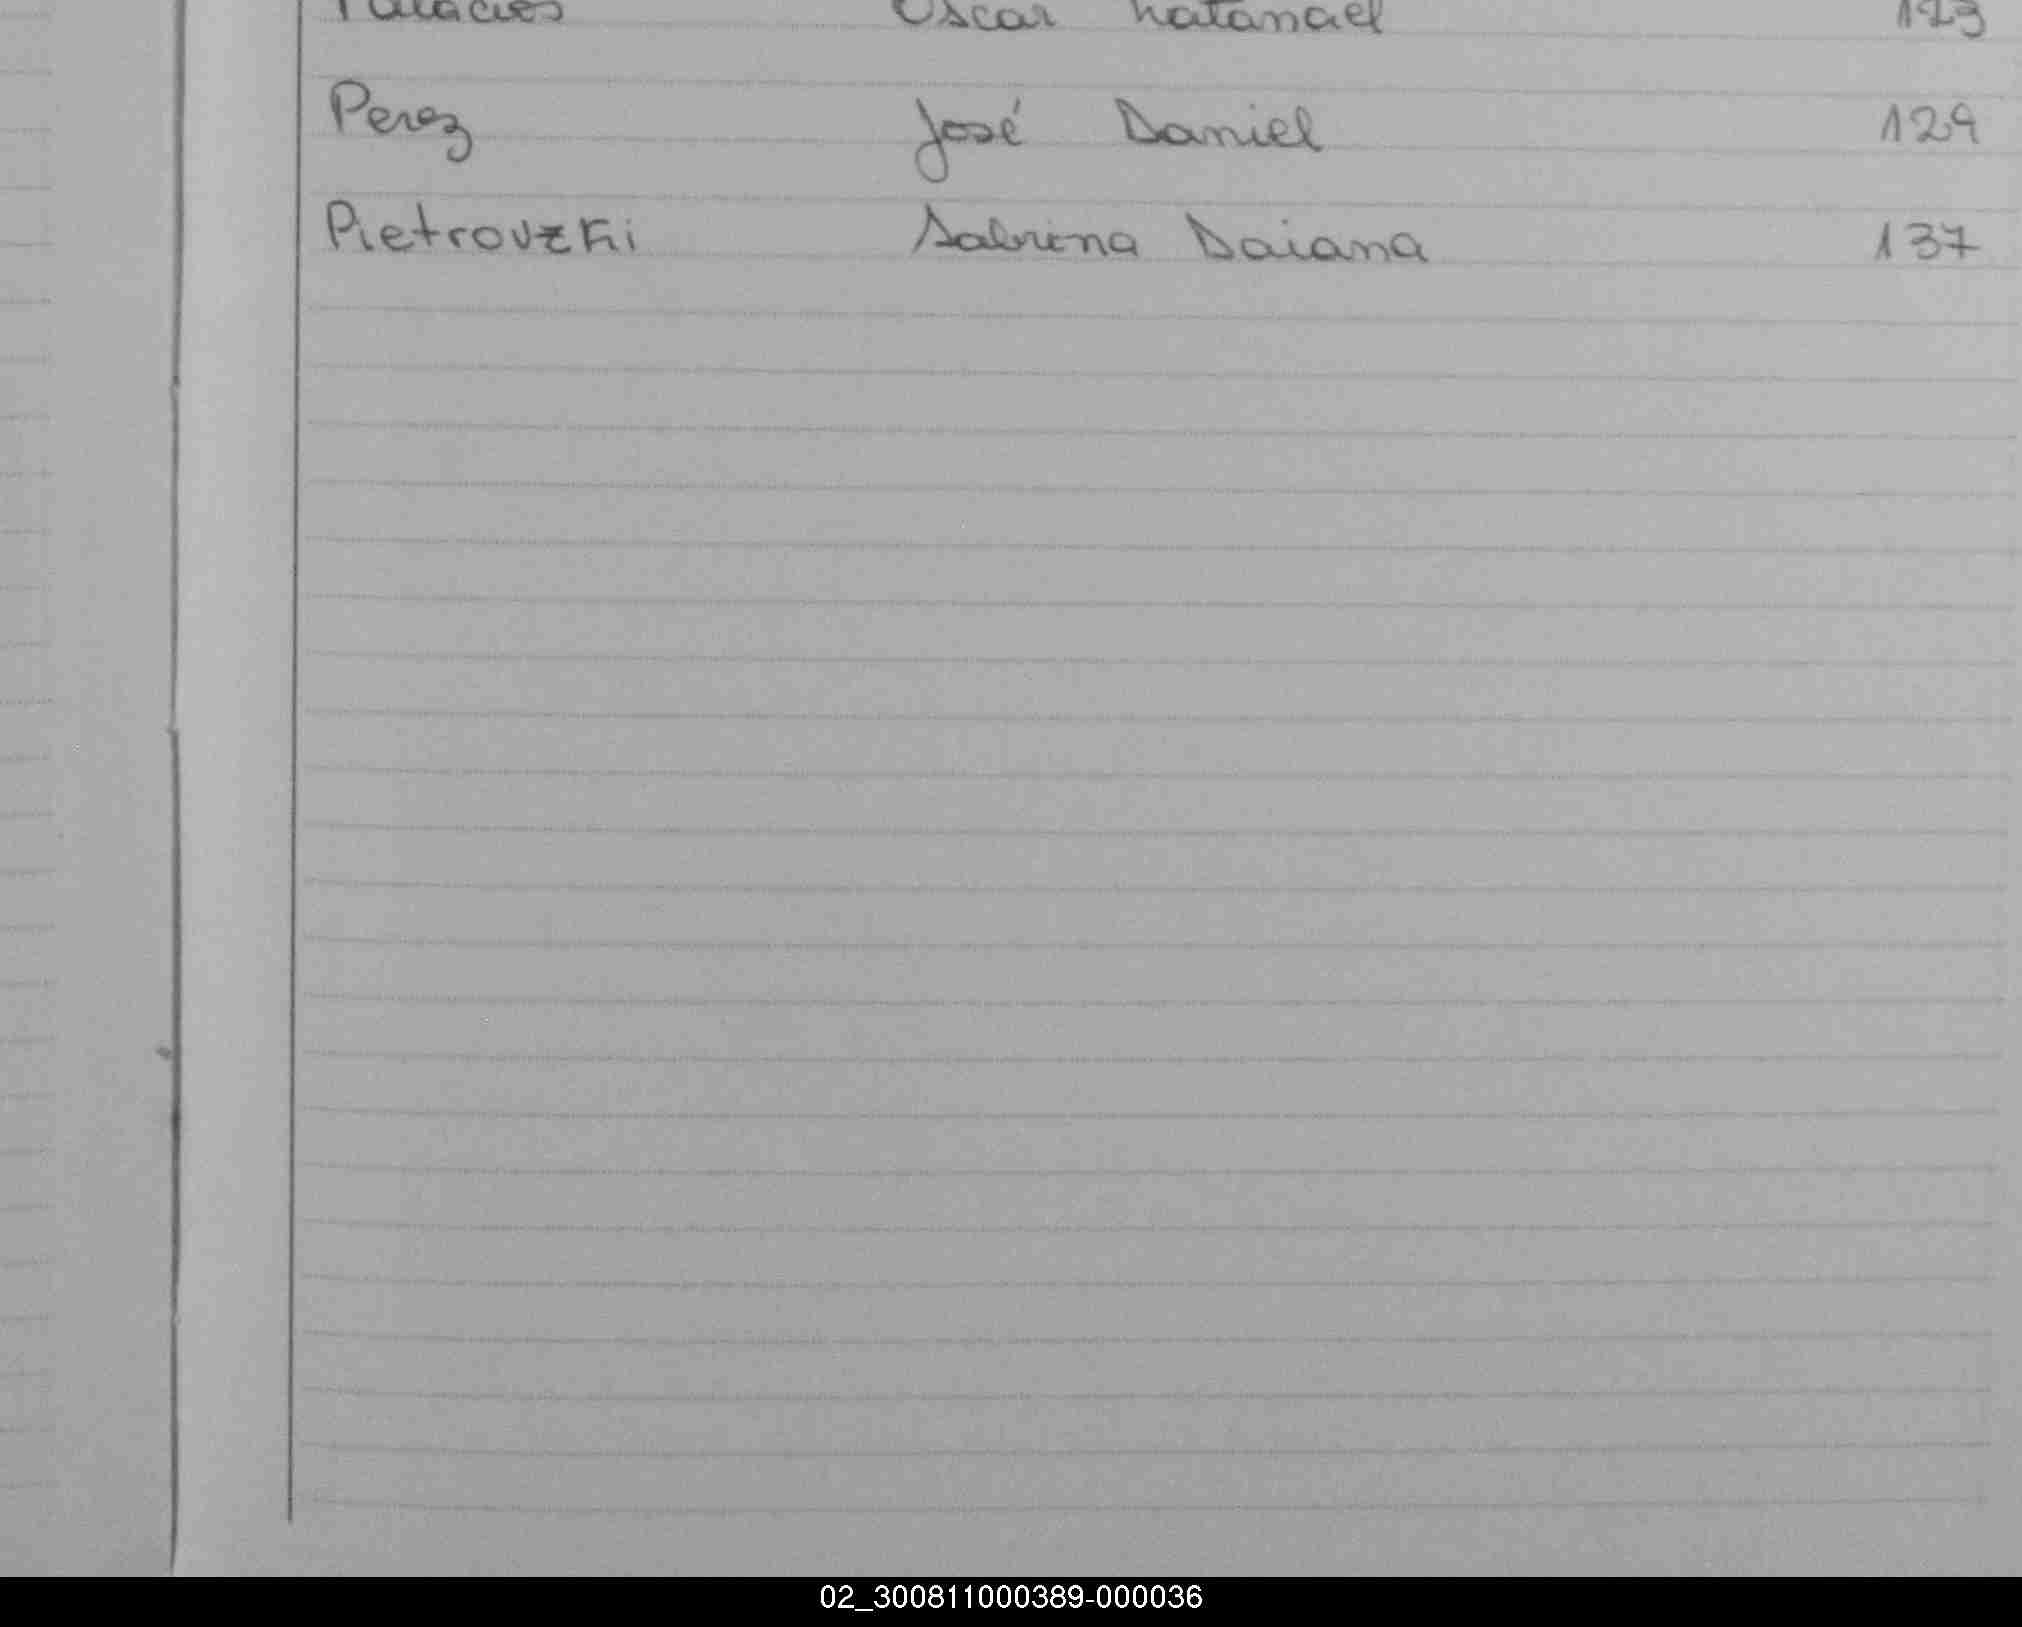 Palacios Oscar Natanael 123
Perez José Daniel 129
Pietrovzki Sabrina Daiana 137
02_300811000389-000036